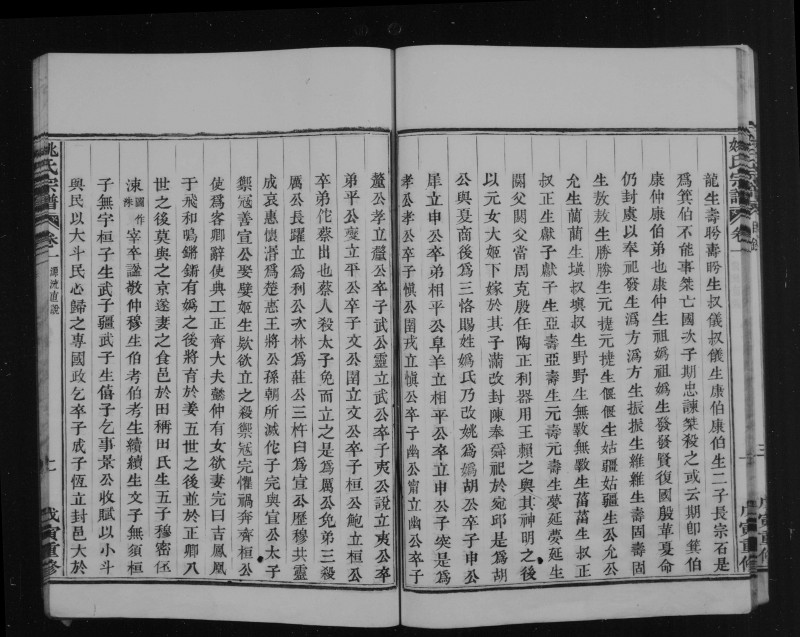 姚氏宗譜
卷一
龍生壽聆壽聆生叔儀叔儀生康伯康伯生二子長宗石是
爲箕伯不能事桀亡國次子期忠諫桀殺之或云期卽箕伯
康仲康伯弟也康仲生祖嬀祖嬀生發發賢復國殷革夏命
仍封虞以奉祀發生爲方爲方生振振生維維生壽固壽固
生敖敖生勝勝生元捷元捷生偃偃生姑疆姑疆生公允公
允生蘭蘭生塡叔塡叔生野野生無斁無斁生萻萻生叔正
叔正生獻子獻子生亞壽亞壽生元壽元壽生夢延夢延生
闕父闕父當周克殷任陶正利器用王賴之與其神明之後
以元女大姬下嫁於其子滿改封陳奉舜祀於宛邱是爲胡
公與夏商後爲三恪賜姓嬀氏乃改姚爲嬀胡公卒子申公
犀立申公卒弟相平公阜羊立相平公卒立申公子突是爲
孝公孝公卒子愼公圉戎立愼公卒子幽公甯立幽公卒子
戊寅重修
釐公孝立釐公卒子武公靈立武公卒子夷公說立夷公卒
弟平公燮立平公卒子文公圉立文公卒子桓公鮑立桓公
卒弟佗蔡出也蔡人殺太子免而立之是爲厲公免弟三殺
厲公長躍立爲利公次林爲莊公三杵臼爲宣公歷穆共靈
成哀惠懷湣爲楚惠王將公孫朝所滅佗子完與宣公太子
禦寇善宣公娶嬖姬生欵欲立之殺禦寇完懼禍奔齊桓公
使爲客卿辭使典工正齊大夫懿仲有女欲妻完曰吉鳳凰
于飛和鳴鏘鏘有嬀之後將育於姜五世之後並於正卿八
世之後莫與之京遂妻之食邑於田稱田氏生五子穆密伾
涑宰卒諡敬仲穆生伯考伯考生續續生文子無須桓
子無宇桓子生武子疆武子生僖子乞事景公收賦以小斗
與民以大斗民心歸之專國政乞卒子成子恆立封邑大於
姚氏宗譜
卷一
源流直敍
七
戊寅重修